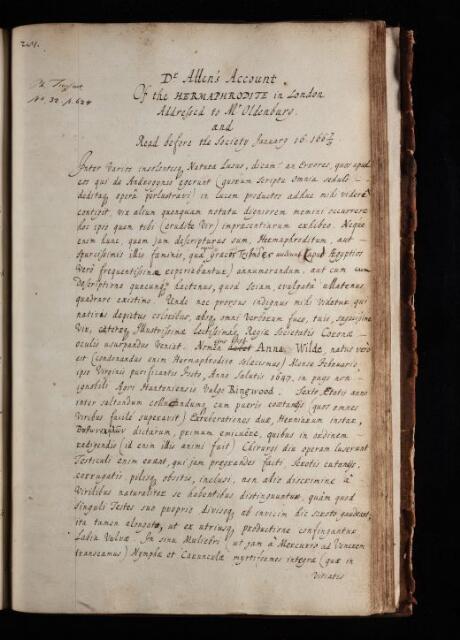 201.
Ph. Transact.
No. 32. p. 624
Dr Allen's Account
Of the HERMAPHRODITE in London
Addressed to Mr Oldenburg.
and
Read before the Society January 16. 1667/8
Inter varios insolentisq Naturæ Lusus, dicam an Errores, quos apud
eos qui de Androgynis egerunt (quorum Scripta omnia sedulo
deditaq operâ perlustravi) in lucem productos adhuc mihi videre
contigit, vix alium quenquam notatu digniorem memini occurrere
hoc ipso quem tibi (erudite Vir) impræsentiarum exhibeo. Neque
enim hunc, quem jam descripturus sum, Hermaphroditum, aut
spurcissimis illis faminis, quas Græcos apud Ægyptios
vero frequentissimæ experiebantur) annumerandum, aut cum
descriptione quacunq hactenus, quod sciam, evulgatâ ullatenus
quadrare existimo. Unde nec prorsus indignus mihi videtur qui
nativis depictus coloribus, absq omni verborum fuco, tuis,
Vir, cæterisq Illustrissimæ lectissimæq Regiæ Societatis Coronæ
oculis usurpandus veniat. Nomen Anna Wilde, natus vero
est (condonandus enim Hermaphrodito solæcismus) Mense Februario,
ipso Virginis purificantis Festo, Anno Salutis 1647. in pago non
ignobili Agri Hantoniensis vulgo Ringwood. Sexto Ætatis anno
inter saltandum colluctandumq cum pueris coætaneis (quos omnes
viribus facile superavit) Exuberationes duæ, Herniarum instar,
dictarum, primum emicuere, quibus in ordinem
redigendis (id enim illis animi fuit) Chirurgi diu operam luserunt
Testiculi enim erant, qui jam prægrandes facti, Scrotis cutaneis,
corrugatis pilisq obsitis, inclusi, non alio discrimine à
Virilibus naturaliter se habentibus distinguuntur, quàm quod
singuli Testes suo proprio divisoq ab invicem Scroto gaudeant,
ita tamen elongato, ut ex utriusq productione confingantur
Labia Vulvæ. In sinu Muliebri (ut jam à Mercurio ad Venerem
transeamus) Nymphæ et Carunculæ myrtiformes integræ (quæ in
vitiatis